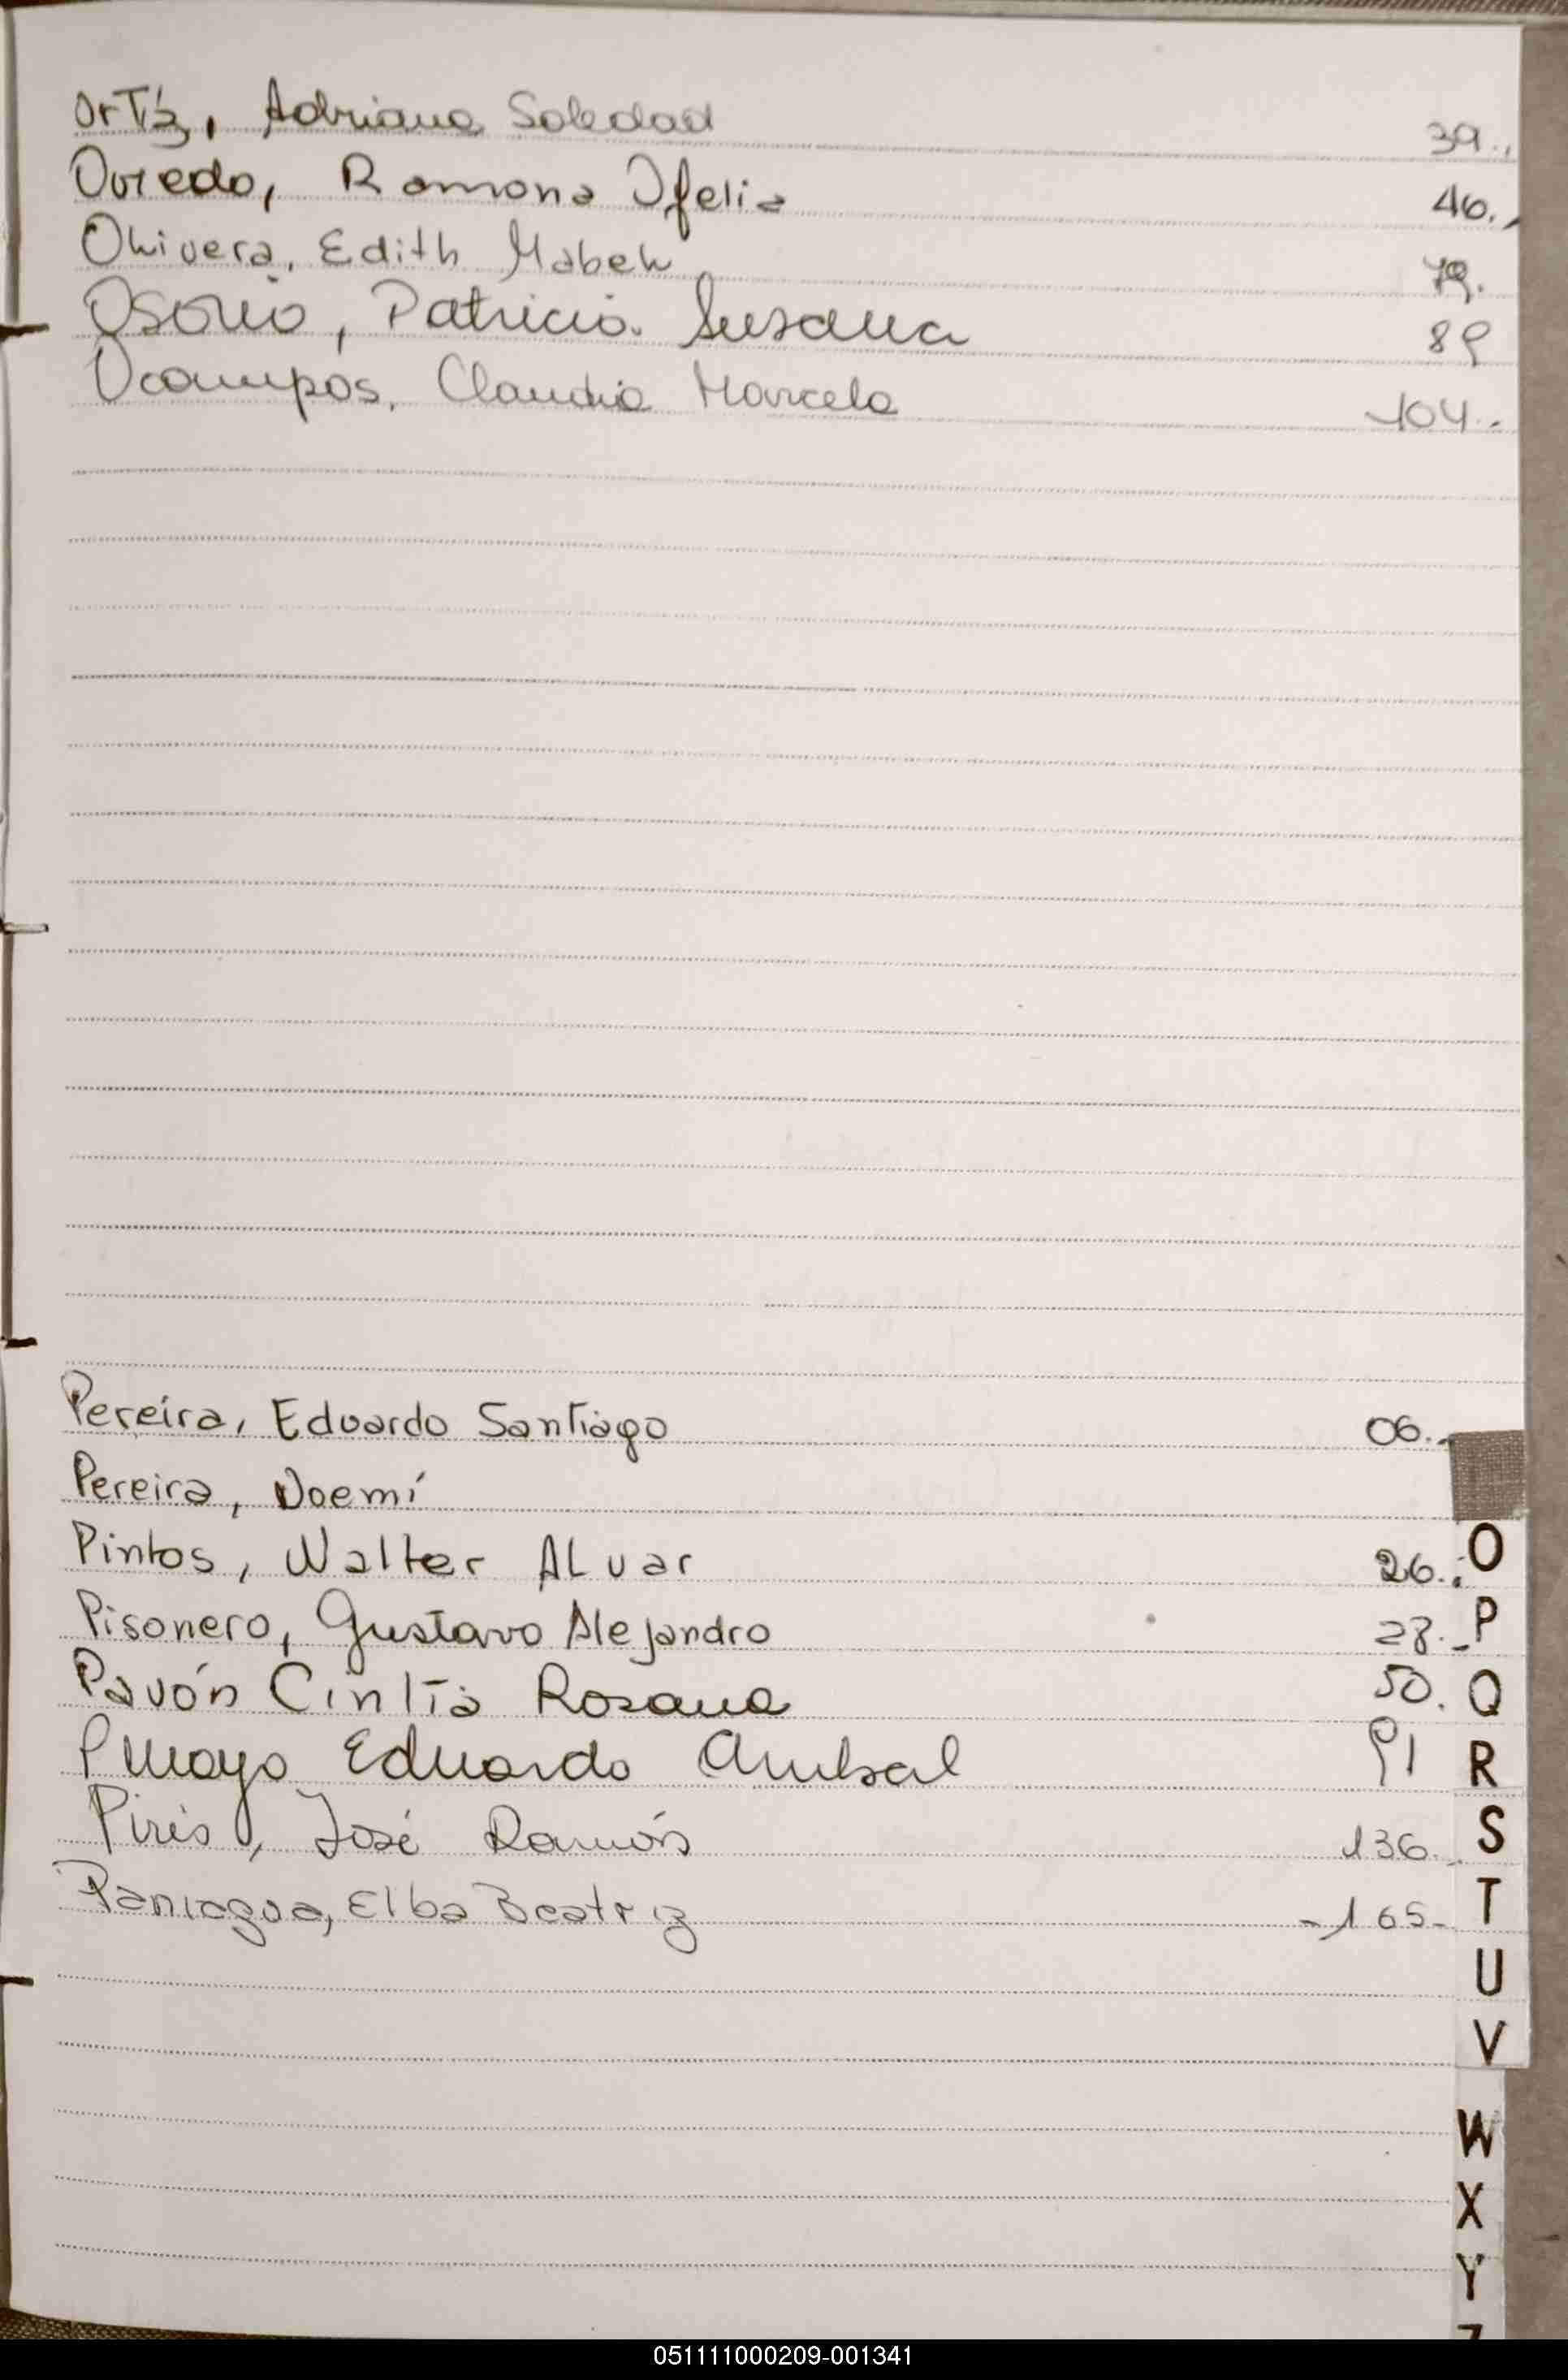 Ortíz, Adriana Soledad 39..
Oviedo, Ramona Ofelia 46..
Olivera, Edith Mabel 79.
Osorio, Patricia Susana 89
Ocampos, Claudia Marcela 104..
Pereira, Eduardo Santiago 06..
Pereira, Noemí
Pintos, Walter ALvar 26..
Pisonero, Gustavo Alejandro 28.-
Pavón Cintia Rosana 50.
Eduardo Anibal 91
Piris, José Ramón 136.
Paniagua, Elba Beatriz -165-
O
P
Q
R
S
T
U
V
W
X
Y
Z
051111000209-001341